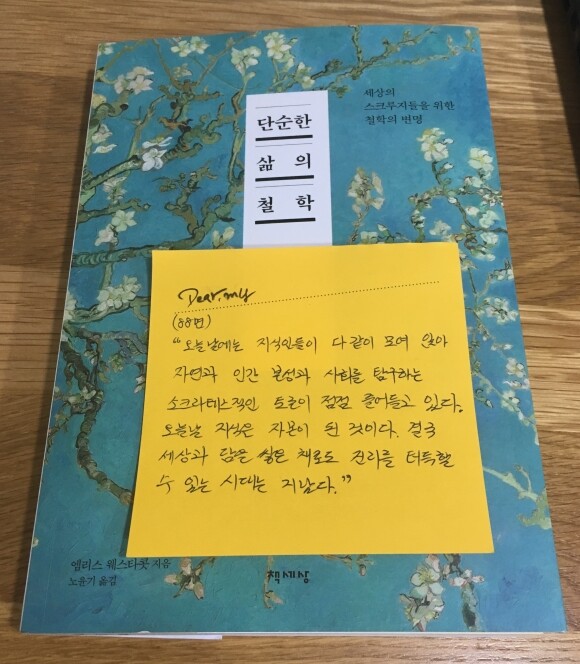 세상의
스크루지들을 위한
철학의 변명
단순한
삶 의
철 학
Dear.my
(88편)
"오늘날에는 지식인들이 다 같이 모여 앉아
자연과 인간 본성과 사회를 탐구하는
소크라테스적인 토론이 점점 줄어들고 있다.
오늘날 지식은 자본이 된 것이다. 결국
세상과 담을 쌓은 채로도 진리를 터득할
수 있는 시대는 지났다."
엠리스 웨스타콧 지음
노윤기 옮김
책세상